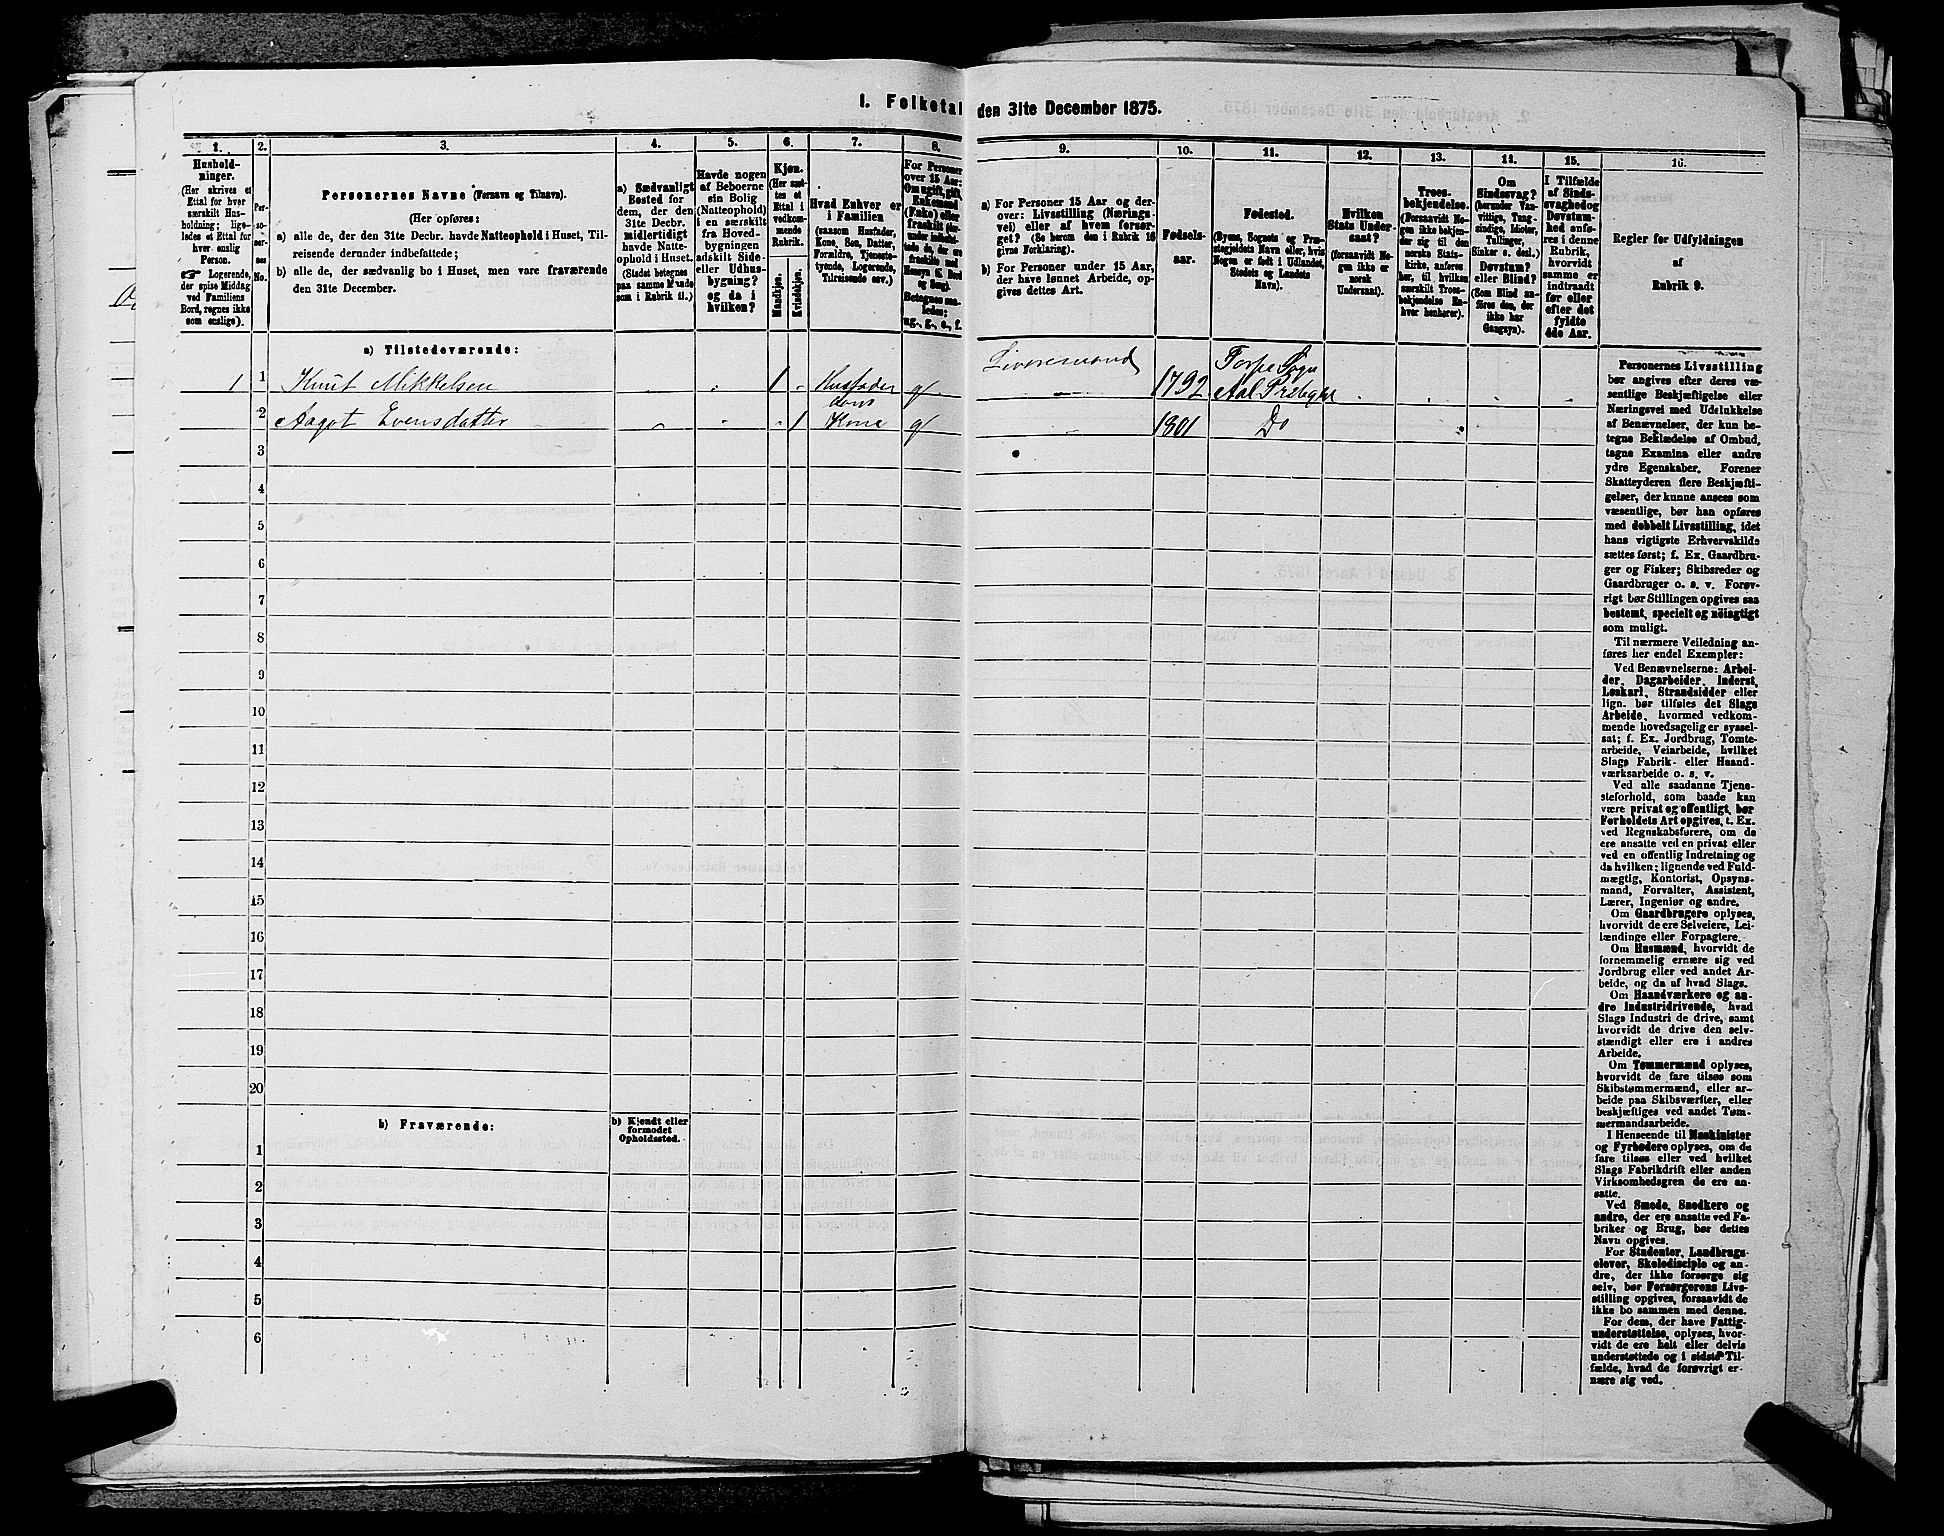 1. Folketal den 31te December 1875.
1.
2.
3.
4.
5.
6.
7.
8.
9.
10.
11.
12.
13.
14.
15.
16.
Hushold-
ninger.
(Her skrives et
Ettal for hver
særskilt Hus-
holdning; lige-
ledes et Ettal for
hver enslig
Person.
Logerende,
der spise Middag
ved Familiens
Bord, regnes ikke
som enslige).
Per-
so-
ner-
nes
No.
Personernes Navne (Fornavn og Tilnavn).
(Her opføres:
a) alle de, der den 31te Decbr. havde Natteophold i Huset, Til-
reisende derunder indbefattede;
b) alle de, der sædvanlig bo i Huset, men vare fraværende
den 31te December.
a) Sædvanligt
Bosted for
dem, der den
31te Decbr.
midlertidigt
havde Natte-
ophold i Huset.
(Stedet betegnes
paa samme Maade
som i Rubrik 11.)
Havde nogen
af Beboerne
sin Bolig
(Natteophold)
i en særskilt
fra Hoved-
bygningen
adskilt Side-
eller Udhus-
bygning?
og da i
hvilken?
Kjøn.
(Her sæt-
tes et
Ettal i
vedkom-
mende
Rubrik.
Mandkjøn.
Kvindekjøn.
Hvad Enhver er
i Familien
(saasom Husfader,
Kone, Søn, Datter,
Forældre, Tjeneste-
tyende, Logerende,
Tilreisende osv.)
For Personer
over 15 Aar:
Om ugift, gift,
Enkemand
(Enke) eller
fraskilt
Betegnes saa-
ledes:
ug., g., e., f.
a) For Personer 15 Aar og der-
over: Livsstilling (Nærings-
vei) eller af hvem forsør-
get? (Se herom den i Rubrik 16
givne Forklaring).
b) For Personer under 15 Aar,
der have lønnet Arbeide, op-
gives dettes Art.
Fødsels-
aar.
Fødested.
(Byens, Sognets og Præ-
stegjeldets Navn eller, hvis
Nogen er født i Udlandet,
Stedets og Landets
Navn).
Hvilken
Stats Under-
saat?
(forsaavidt No-
gen ikke er
norsk
Undersaat).
Troes-
bekjendelse.
(Forsaavidt No-
gen ikke bekjen-
der sig til den
norske Stats-
kirke, anføres
her, til hvilken
særskilt Troes-
bekjendelse En-
hver henhører).
Om
Sindssvag?
(herunder Van-
vittige, Tung-
sindige, Idioter,
Tullinger,
Sinker o. desl.)
Døvstum?
eller Blind?
(Som Blind an-
føres den, der
ikke har
Gangsyn).
I Tilfælde
af Sinds-
svaghed og
Døvstum-
hed anfø-
res i denne
Rubrik,
hvorvidt
samme er
indtraadt
før eller
efter det
fyldte
4de Aar.
Regler for Udfyldningen
af
Rubrik 9.
a) Tilstedeværende:
1 1 Knut Mikkelsen 1 Husfader g Livøresmand 1792 Torpe Sogn Aal Prstgjel
2 Aagot Evensdatter 1 Kone g 1801 Do
3
4
5
6
7
8
9
10
11
12
13
14
15
16
17
18
19
20
b) Fraværende:
b) Kjendt eller
formodet
Opholdssted.
1
2
3
4
5
6
Personernes Livsstilling
bør angives efter deres væ-
sentlige Beskjæftigelse eller
Næringsvei med Udelukkelse
af Benævnelser, der kun be-
tegne Beklædelse af Ombud,
tagne Examina eller andre
ydre Egenskaber. Forener
Skatteyderen flere Beskjæfti-
gelser, der kunne ansees som
væsentlige, bør han opføres
med dobbelt Livsstilling, idet
hans vigtigste Erhvervskilde
sættes først; f. Ex. Gaardbru-
ger og Fisker; Skibsreder og
Gaardbruger o. s. v. Forøv-
rigt bør Stillingen opgives saa
bestemt, specielt og nøiagtigt
som muligt.
Til nærmere Veiledning an-
føres her endel Exempler:
Ved Benævnelserne: Arbei-
der, Dagarbeider, Inderst,
Løskarl, Strandsidder eller
lign. bør tilføies det Slags
Arbeide, hvormed vedkom-
mende hovedsagelig er syssel-
sat; f. Ex. Jordbrug, Tomte-
arbeide, Veiarbeide, hvilket
Slags Fabrik- eller Haand-
værksarbeide o. s. v.
Ved alle saadanne Tjene-
steforhold, som baade kan
være privat og offentligt, bør
Forholdets Art opgives, t. Ex.
ved Regnskabsførere, om de
ere ansatte ved en privat eller
ved en offentlig Indretning og
da hvilken; lignende ved Fuld-
mægtig, Kontorist, Opsyns-
mand, Forvalter, Assistent,
Lærer, Ingeniør og andre.
Om Gaardbrugere oplyses,
hvorvidt de ere Selveiere, Lei-
lændinge eller Forpagtere.
Om Husmænd, hvorvidt de
fornemmelig ernære sig ved
Jordbrug eller ved andet Ar-
beide, og da af hvad Slags.
Om Haandværkere og an-
dre Industridrivende, hvad
Slags Industri de drive, samt
hvorvidt de drive den selv-
stændigt eller ere i andres
Arbeide.
Om Tømmermænd oplyses,
hvorvidt de fare tilsøs som
Skibstømmermænd, eller ar-
beide paa Skibsværfter, eller
beskjæftiges ved andet Tøm-
mermandsarbeide.
I Henseende til Maskinister
og Fyrbødere oplyses, om de
fare tilsøs eller ved hvilket
Slags Fabrikdrift eller anden
Virksomhedsgren de ere an-
satte.
Ved Smede, Snedkere og
andre, der ere ansatte ved Fa-
briker og Brug, bør dettes
Navn opgives.
For Studenter, Landbrugs-
elever, Skoledisciple og an-
dre, der ikke forsørge sig
selv, bør Forsørgerens Livs-
stilling opgives, forsaavidt de
ikke bo sammen med denne.
For dem, der have Fattig-
understøttelse, oplyses, hvor-
vidt de ere helt eller delvis
understøttede og i sidste Til-
fælde, hvad de forøvrigt er-
nære sig ved.